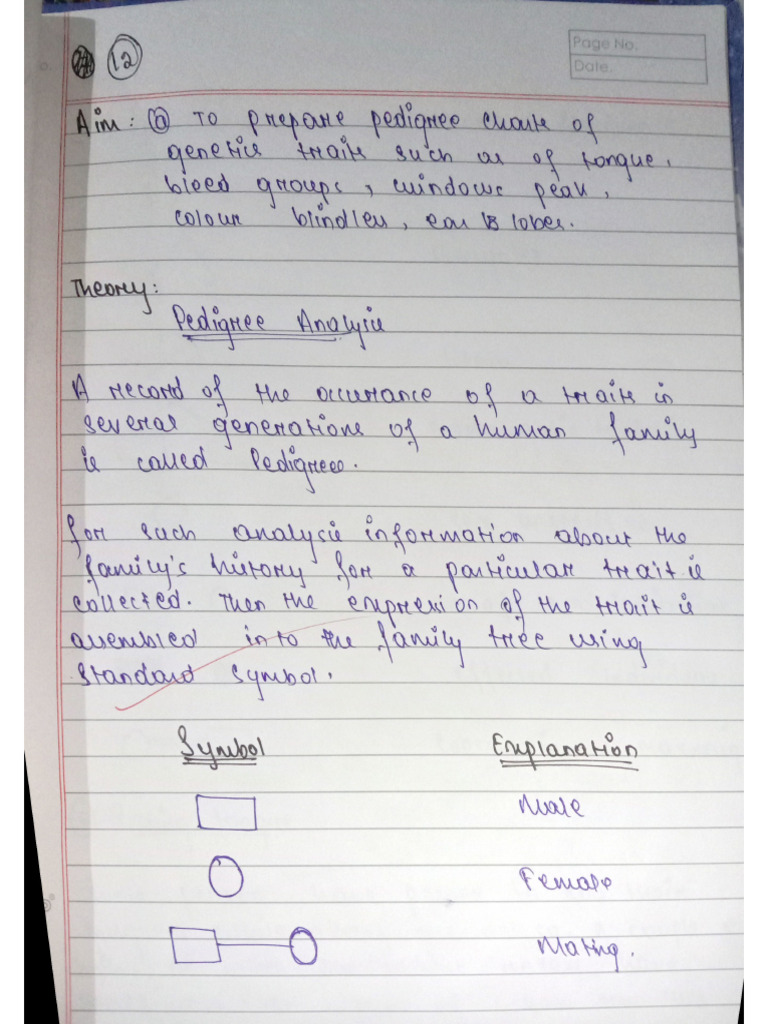 12
Page No.
Date.
Aim: (a) To prepare pedigree chart of
genetic traits such as of tongue,
blood groups, windows peak,
colour blindless, ear lobes.
Theory:
Pedigree Analysis
A record of the occurrance of a traits in
several generations of a human family
is called Pedigree.
for such analysis information about the
family's history for a particular trait is
collected. Then the expression of the trait is
assembled into the family tree using
standard symbol.
Symbol Explanation
Male
Female
Mating.